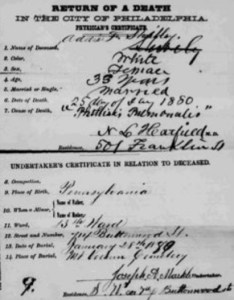 RETURN OF A DEATH
IN THE CITY OF PHILADELPHIA.
PHYSICIAN'S CERTIFICATE.
1. Name of Deceased,
2. Color, White
3. Sex, Female
4. Age, 33 Years
5. Married or Single, Married
6. Date of Death, 25 day of Jany 1880
7. Cause of Death, "Phthisis Pulmonalis"
N. L. Hatfield M.D.
Residence, 501 Franklin St
UNDERTAKER'S CERTIFICATE IN RELATION TO DECEASED.
8. Occupation,
9. Place of Birth, Pennsylvania
10. When a Minor, Name of Father,
Name of Mother,
11. Ward, 13th Ward
12. Street and Number, Buttonwood St
13. Date of Burial, January 28th 1880
14. Place of Burial, Cemetery
Joseph
Residence, Buttonwood St
9.